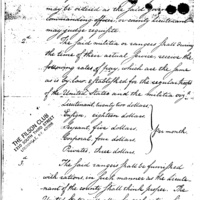 may be ordered as the said
commanding officer, or county lieutenant
may judge requisite
The said militia or rangers shall during
the time of their actual service receive the
following rates of pay, which are the same
as is by law established for the regular troops
of the United States and the militia viz.
Lieutenant, twenty two dollars
Ensign, eighteen dollars
Serjeant, five dollars
Corporal, four dollars
Privates, three dollars
per month
The said rangers shall be furnished
with rations in such manner as the lieute-
nant of the county shall think proper. The
THE FILSON CLUB